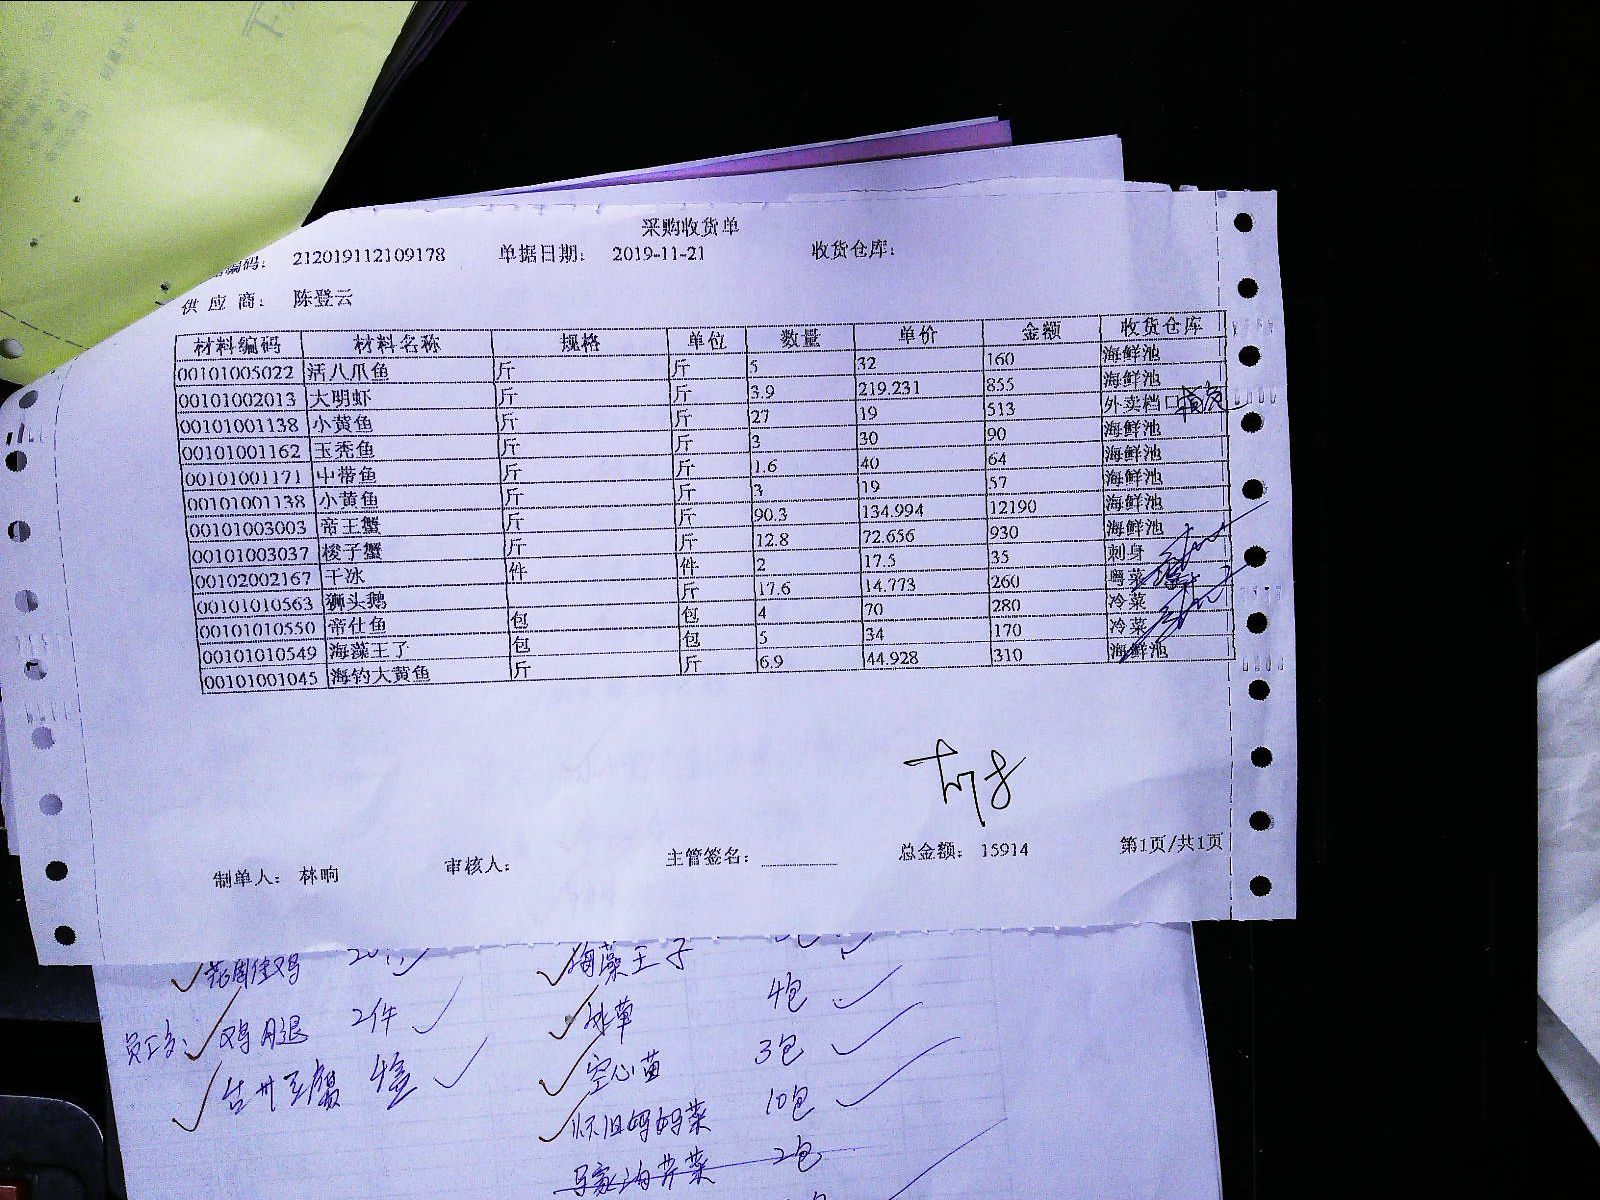 采购收货单
编码： 212019112109178 单据日期： 2019-11-21 收货仓库：
供 应 商： 陈登云
材料编码 材料名称 规格 单位 数量 单价 金额 收货仓库
00101005022 活八爪鱼 斤 斤 5 32 160 海鲜池
00101002013 大明虾 斤 斤 3.9 219.231 855 海鲜池
00101001138 小黄鱼 斤 斤 27 19 513 外卖档口
00101001162 玉秃鱼 斤 斤 3 30 90 海鲜池
00101001171 中带鱼 斤 斤 1.6 40 64 海鲜池
00101001138 小黄鱼 斤 斤 3 19 57 海鲜池
00101003003 帝王蟹 斤 斤 90.3 134.994 12190 海鲜池
00101003037 梭子蟹 斤 斤 12.8 72.656 930 海鲜池
00102002167 干冰 件 件 2 17.5 35 刺身
00101010563 狮头鹅 斤 17.6 14.773 260 粤菜
00101010550 帝仕鱼 包 包 4 70 280 冷菜
00101010549 海藻王子 包 包 5 34 170 冷菜
00101001045 海钓大黄鱼 斤 斤 6.9 44.928 310 海鲜池
制单人： 林响 审核人： 主管签名： 总金额： 15914 第1页/共1页
海藻王子
鸡腿 2件 冰草 4包
台州豆腐 空心苗 3包
怀旧妈妈菜 10包
2包